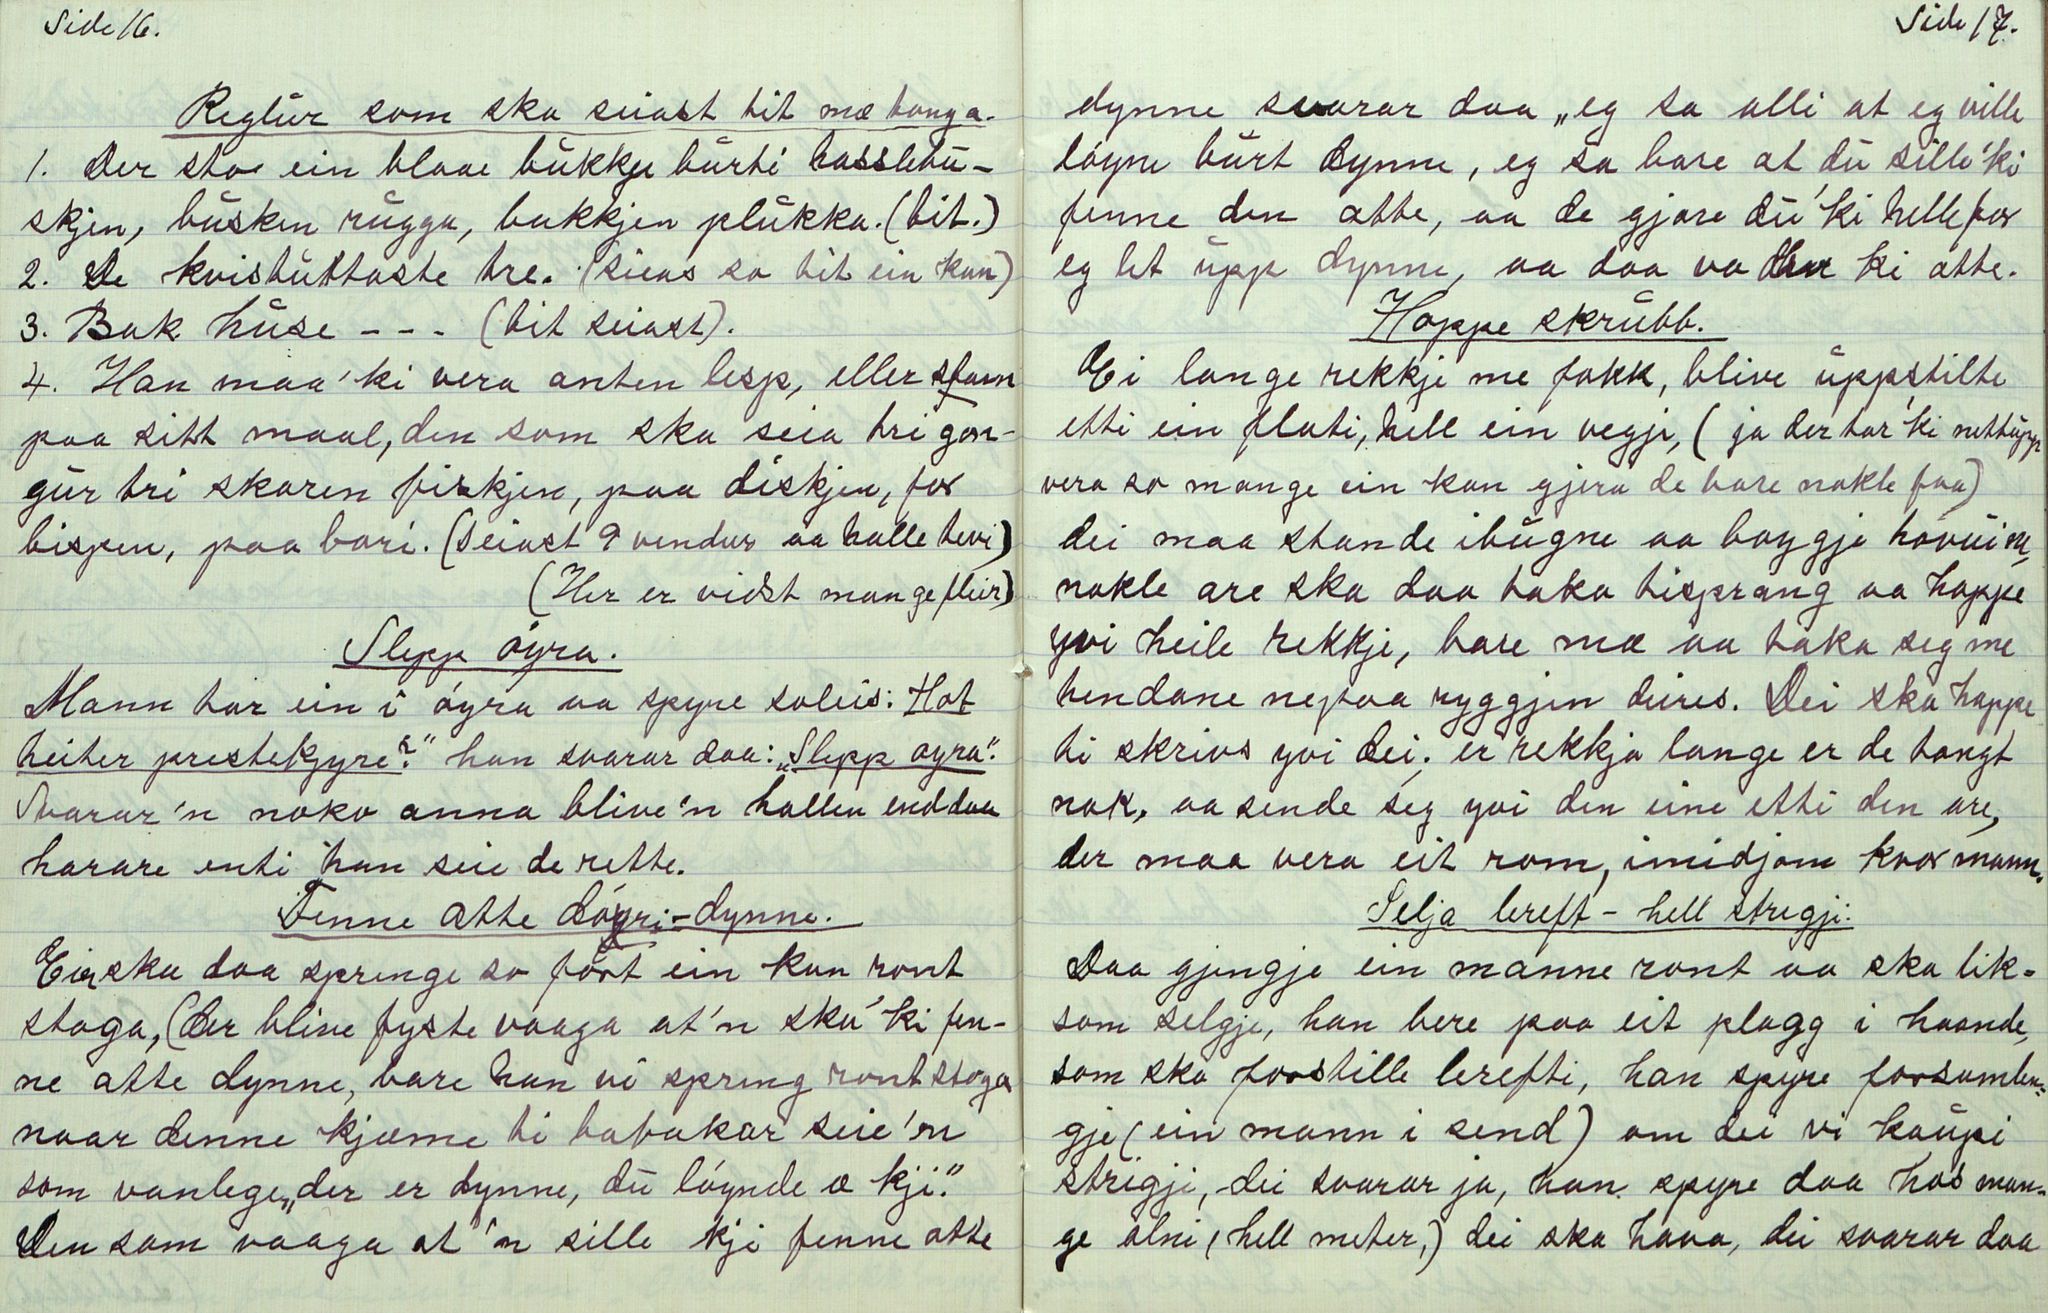 Side 16.
Reglür som ska seiast tit mæ tonga.
1. Der sto ein blaae bükkje bürti hasslebü-
skjen, büsken rügga, bukkjen plükka. (tit.)
2. De kvistüttaste tre. (sieas so tit ein kan)
3. Bak hüse - - - (tit seiast).
4. Han maa'ki vera anten lesp, eller stam
paa sitt maal, den som ska seia tri gon-
gür tri skaren firkjen, paa diskjen, for
bispen, paa bori. (Seiast 9 vendur aa halle tevi)
(Her er vidst mange fleir)
Slepp óyra.
Mann tar ein i óyra aa spyre soleis: Hot
heiter prestekjyre?" han svarar daa: „Slepp oyra".
Svarar'n noko anna blive'n hallen enddaa
harare enti han seie de rette.
Fenne atte dóyri-dynne.
Ein ska daa springe so fórt ein kan ront
stoga, (der blive fyste vaaga at'n ska'ki fen-
ne atte dynne, bare han vi spring ront stoga
naar denne kjæme ti bafakar seie'n
som vanlege „der er dynne, dü lóynde æ kji."
Den som vaaga at'n sille kji fenne atte
Side 17.
dynne svarar daa „eg sa alli at eg ville
lóyne bürt dynne, eg sa bare at dü sille'ki
fenne den atte, aa de gjore dü'ki helle for
eg let üpp dynne, aa daa va der ki atte.
Hoppe skrübb.
Ei lange rekkje me fokk, blive üppstilte
etti ein flati, hell ein vegji, (ja der tar'ki nettüpp
vera so mange ein kan gjera de bare nokle faa)
dei maa stande ibügne aa boyggje hovüi ne,
nokle are ska daa taka tisprang aa hoppe
yvi heile rekkje, bare mæ aa taka seg me
hendane nepaa ryggjen deires. Dei ska hoppe
ti skrivs yvi dei; er rekkja lange er de tongt
nok, aa sende seg yvi den eine etti den are,
der maa vera eit rom, imidjom kvor mann.
Selja lereft - hell strigji.
Daa gjengje ein manne ront aa ska lik-
som selgje, han bere paa eit plagg i haande,
som ska forstille lerefti, han spyre forsamlen-
gje (ein mann i send) om dei vi kaüpi
strigji, dei svarar ja, han spyre daa hos man-
ge alni (hell meter,) dei ska hava, dei svarar daa